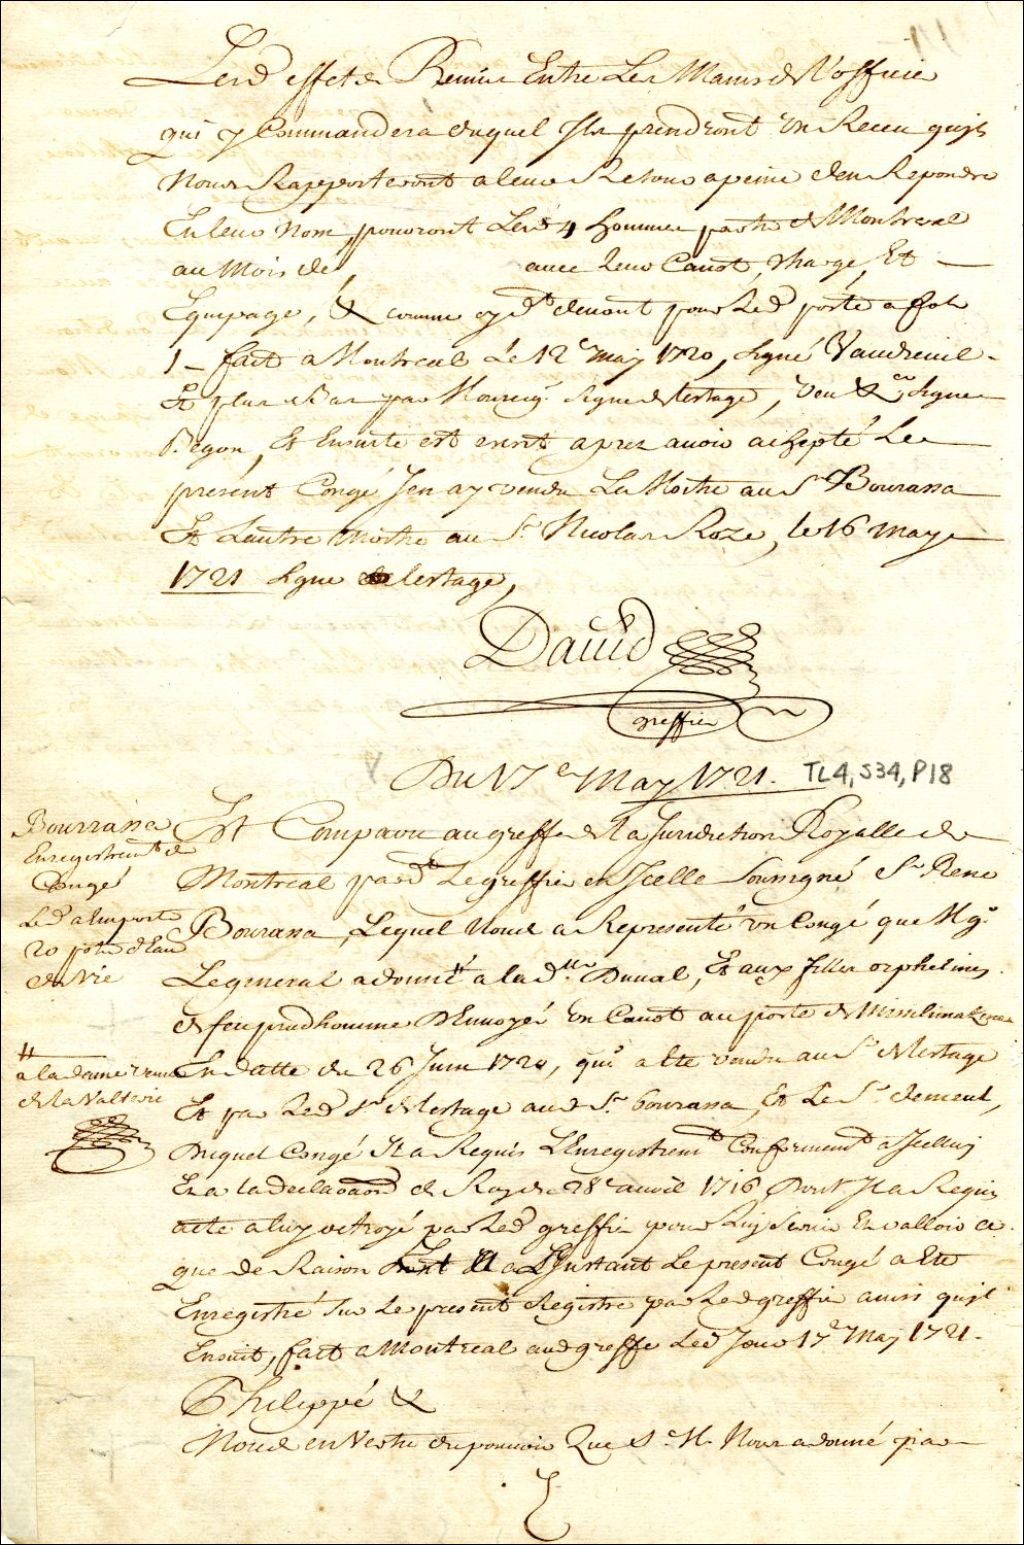 Lesd effets Remis Entre Les Mains de L'officier
qui y Commandera duquel Ils prendront un Receu quils
Nous Rapporteront a leur Retour a peine d'en Repondre
En leur Nom, pouront Lesd 4 hommes partir de Montreal
au Mois de avec leur Canot, charge, Et
Equipage, & comme cyd.t devant pour Led porté a fol
1 - fait a Montreal Le 12e may 1720, signé Vaudreuil
Et plus Bas par Monseig.r signe de lestage, veu &.ca signe
Begon, Et Ensuite est escrit apres avoir accepté Le
present Congé J'en ay vendu La Moitie au Sr Bourassa
Et Lautre Moitie au Sr. Nicolas Roze, le 16 may
1721 signe de lestage,
David
greffier
Du 17e May 1721.
TL4, S34, P18
Bourrassa
Enregistrem.t de
Congé
Led a emporté
20 pots d'Eau
de Vie
# a la dame veuve
de la Valterie
Est Comparu au greffe de la Jurisdiction Royalle de
Montreal pard.t Le greffier en Icelle Soussigné Sr. Rene
Bourassa, Lequel Nous a Representé un Congé que Mgr.
Le general a donné # a la d.lle Duval, Et aux filles orphelines
de feu prudhomme D'Envoyer un Canot au poste de Missilimakinac
En datte du 26 Juin 1720, qui a Eté vendu au Sr. de lestage
Et par Led Sr de lestage aud Sr. bourassa, Et Le Sr. clement,
Duquel Congé Il a Requis L'Enregistrem.t Conformem.t a Icelluy
Et a la declaraon du Roy du 28e avril 1716 Dont Il a Requis
acte a luy octroyé par Led greffier pour Luy Servir En valloir ce
que de Raison Et a L'Instant Le present Congé a Eté
Enregistré Sur Le present Registre par Led greffier ainsi quil
Ensuit, fait a Montreal aud greffe Led Jour 17e May 1721.
Philippé &
Nous en Vertu du pouvoir Que S. M. Nous a donné par